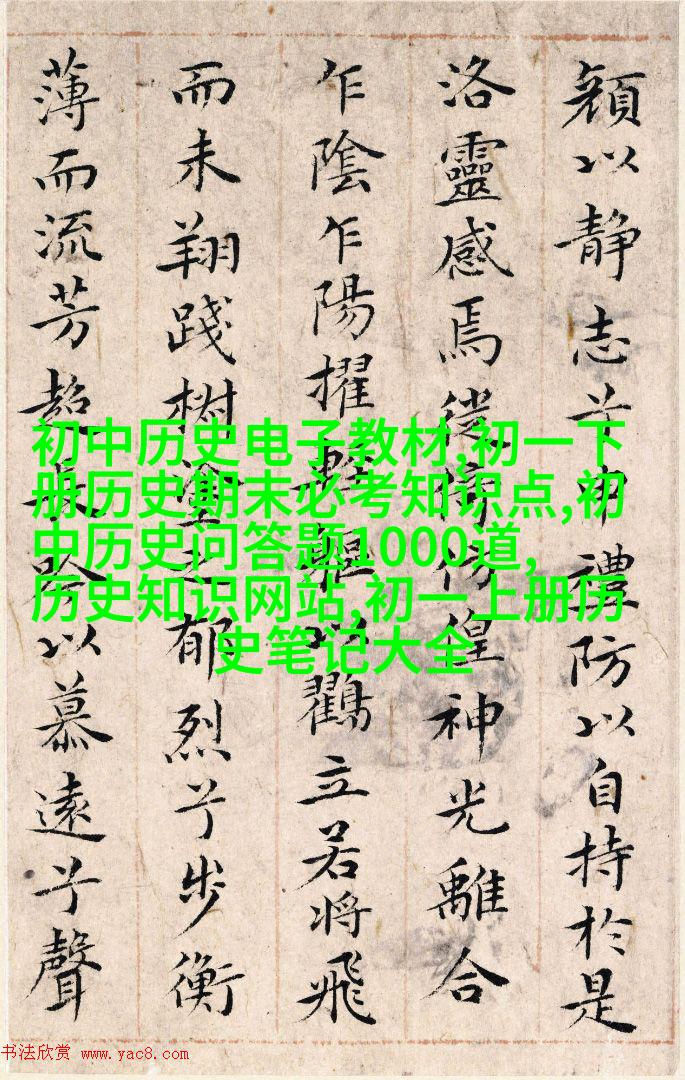 顔以静志兮申禮防以自持於是
洛靈感焉徙倚仿偟神光離合
乍陰乍陽擢輕軀以鸖立若將飛
而未翔踐椒塗之郁烈兮步衡
薄而流芳超長吟以慕遠兮聲
初中历史电子教材,初一下
册历史期末必考知识点,初
中历史问答题1000道,
历史知识网站,初一上册历
史笔记大全
书法欣赏 www.yac8.com